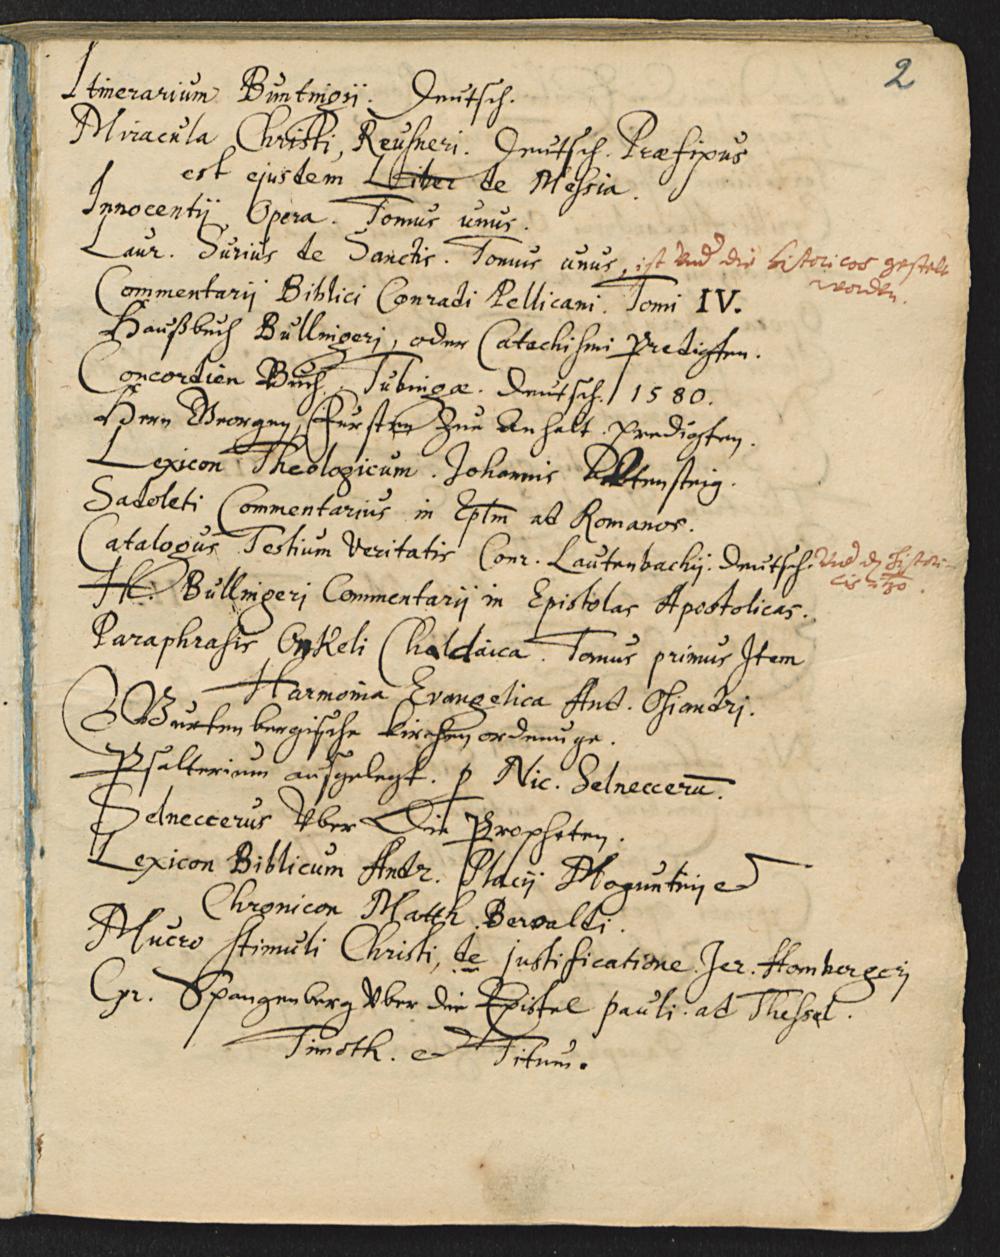 2
Itinerarium Buntingij. Deutsch.
Miracula Christi, Reusneri. Deutsch. Præfixus
est ejusdem Liber de Messia.
Innocentij Opera. Tomus unus.
Laur. Surius de Sanctis. Tomus unus, ist Und die historicos gestelt
worden.
Commentarij Biblici Conradi Pellicani. Tomi IV.
Haußbuch Bullingeri, oder Catechismi Predigten.
Concordien Buch. Tubingæ. Deutsch. 1580.
Hern Georgen, Fursten Zue Anhalt. Predigten.
Lexicon Theologicum. Johannis Altensteig.
Sadoleti Commentarius in Eplm ad Romanos.
Catalogus Testium Veritatis Conr. Lautenbachij. Deutsch.
H. Bullingeri Commentarij in Epistolas Apostolicas.
Paraphrasis Onkeli Chaldaica. Tomus primus Item
Harmonia Evangelica And. Osiandri.
Wurtenbergische kirchenordnunge.
Psalterium ausgelegt. p Nic. Selneccerū.
Selneccerus Uber Die Propheten.
Lexicon Biblicum Andr. Placij Moguntinj et
Chronicon Matth. Beroaldi.
Mucro stimuli Christi, de justificatione. Jer. Hombergerj
Cyr. Spangenberg Uber die Epistel pauli. ad Thessal.
Timoth. et Titum.